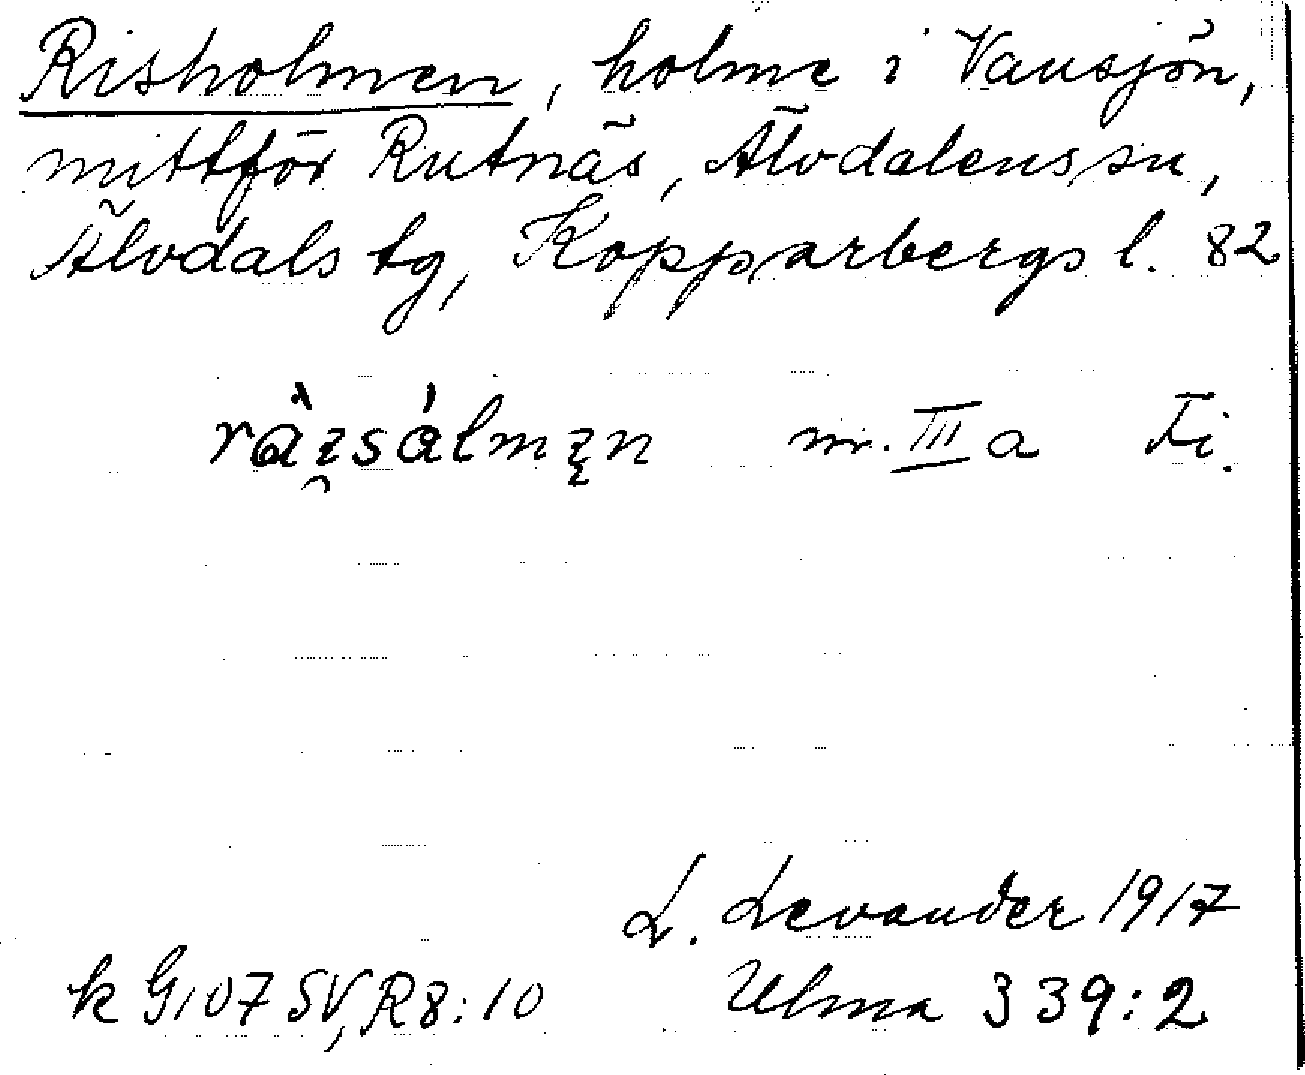 Risholmen, holme i Vansjön,
mittför Rutnäs, Älvdalens sn,
Älvdals tg, Kopparbergs l. 82
m. III a Fi.
L. Levander 1917
k G107 SV, R8:10 Ulma 339:2